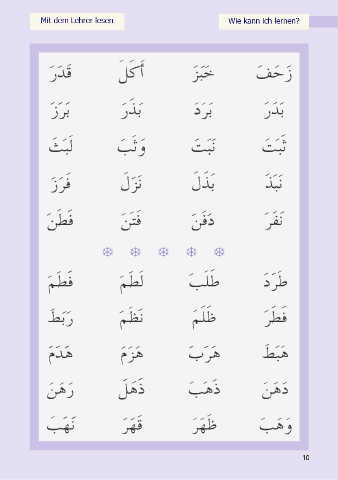 Mit dem Lehrer lesen Wie kann ich lernen?
زَحَفَ خَبَزَ أَكَلَ قَدَرَ
بَذَرَ بَرَدَ بَذَرَ بَرَزَ
ثَبَتَ نَبَتَ وَثَبَ لَبَثَ
نَبَذَ بَذَلَ نَزَلَ فَرَزَ
نَفَرَ دَفَنَ فَتَنَ فَطَنَ
طَرَدَ طَلَبَ لَطَمَ فَطَمَ
فَطَرَ ظَلَمَ نَظَمَ رَبَطَ
هَبَطَ هَرَبَ هَزَمَ هَدَمَ
دَهَنَ ذَهَبَ ذَهَلَ رَهَنَ
وَهَبَ ظَهَرَ قَهَرَ نَهَبَ
10